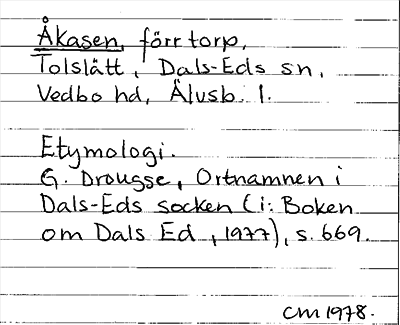 Åkasen, förr torp,
Tolslätt, Dals-Eds sn,
Vedbo hd, Älvsb. l.
Etymologi.
G. Drougge, Ortnamnen i
Dals-Eds socken (i: Boken
om Dals Ed, 1977), s. 669.
CM 1978.